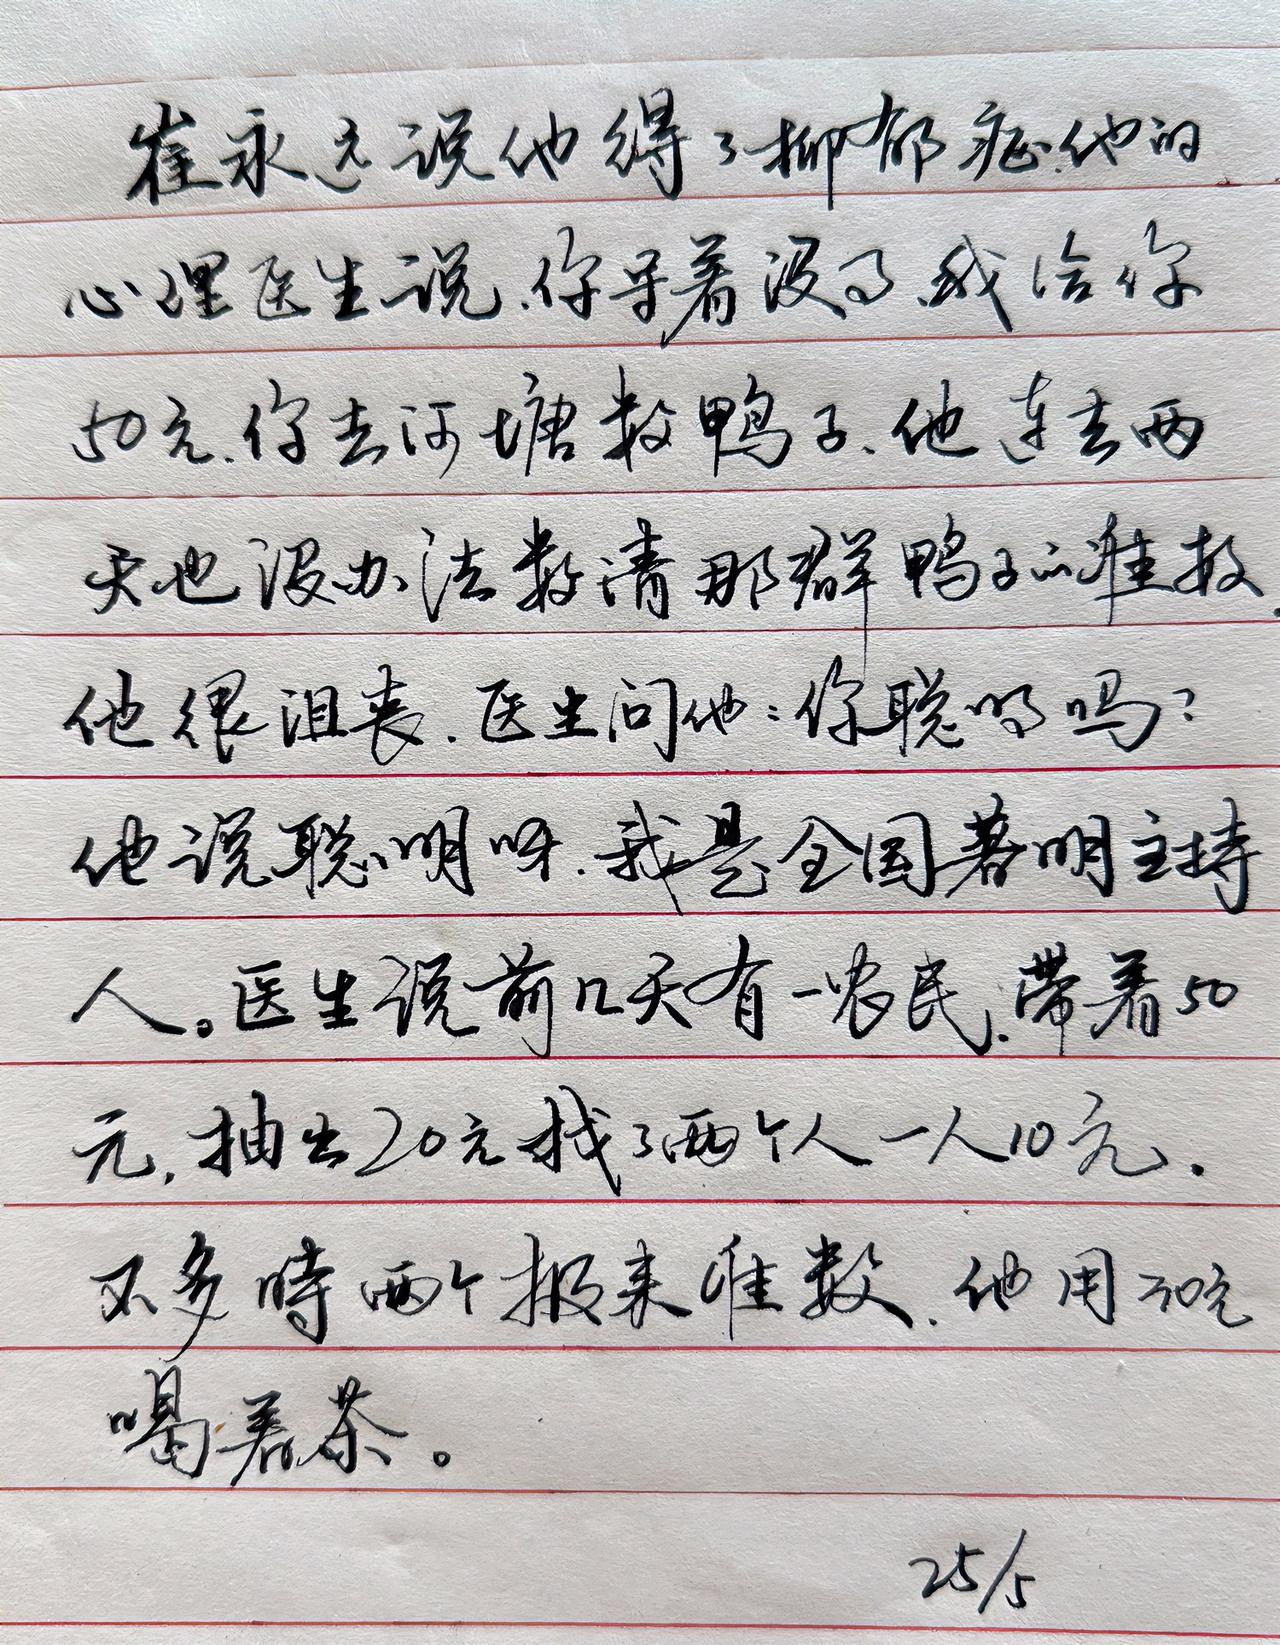 崔永远说他得了抑郁症.他的
心理医生说.你呆着没事.我给你
50元.你去河塘数鸭子.他连去两
天也没办法数清那群鸭子的准数.
他很沮丧.医生问他:你聪明吗?
他说聪明呀.我是全国著明主持
人。医生说前几天有一农民.带着50
元,抽出20元找了两个人一人10元.
不多時两个报来准数.他用30元
喝着茶。
25/5